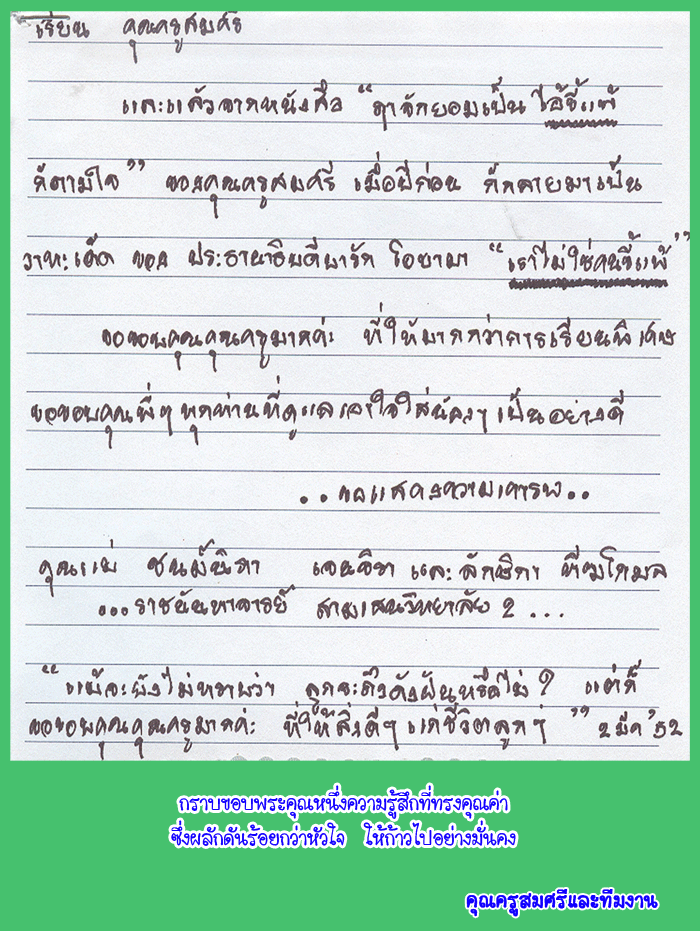 เรียน คุณครูสมศรี
และแล้วจากหนังสือ “ถ้าจักยอมเป็น ไอ้ขี้แพ้
ก็ตามใจ” ของคุณครูสมศรี เมื่อปีก่อน ก็กลายมาเป็น
วาทะเด็ด ของ ประธานาธิบดีบารัก โอบามา “เราไม่ใช่คนขี้แพ้”
ขอขอบคุณคุณครูมากค่ะ ที่ให้มากกว่าการเรียนพิเศษ
ขอขอบคุณพี่ๆ ทุกท่านที่ดูแลเอาใจใส่น้องๆ เป็นอย่างดี
..ขอแสดงความเคารพ..
คุณแม่ เจนจิรา และ ลักษิกา ทีฆโกมล
...ราชนันทาจารย์ สามเสนวิทยาลัย 2 ...
“แม้จะยังไม่ทราบว่า ลูกจะถึงดังฝันหรือไม่? แต่ก็
ขอขอบคุณคุณครูมากค่ะ ที่ให้สิ่งดีๆ แก่ชีวิตลูกๆ” 2 มีค’52
กราบขอบพระคุณหนึ่งความรู้สึกที่ทรงคุณค่า
ซึ่งผลักดันร้อยกว่าหัวใจ ให้ก้าวไปอย่างมั่นคง
คุณครูสมศรีและทีมงาน